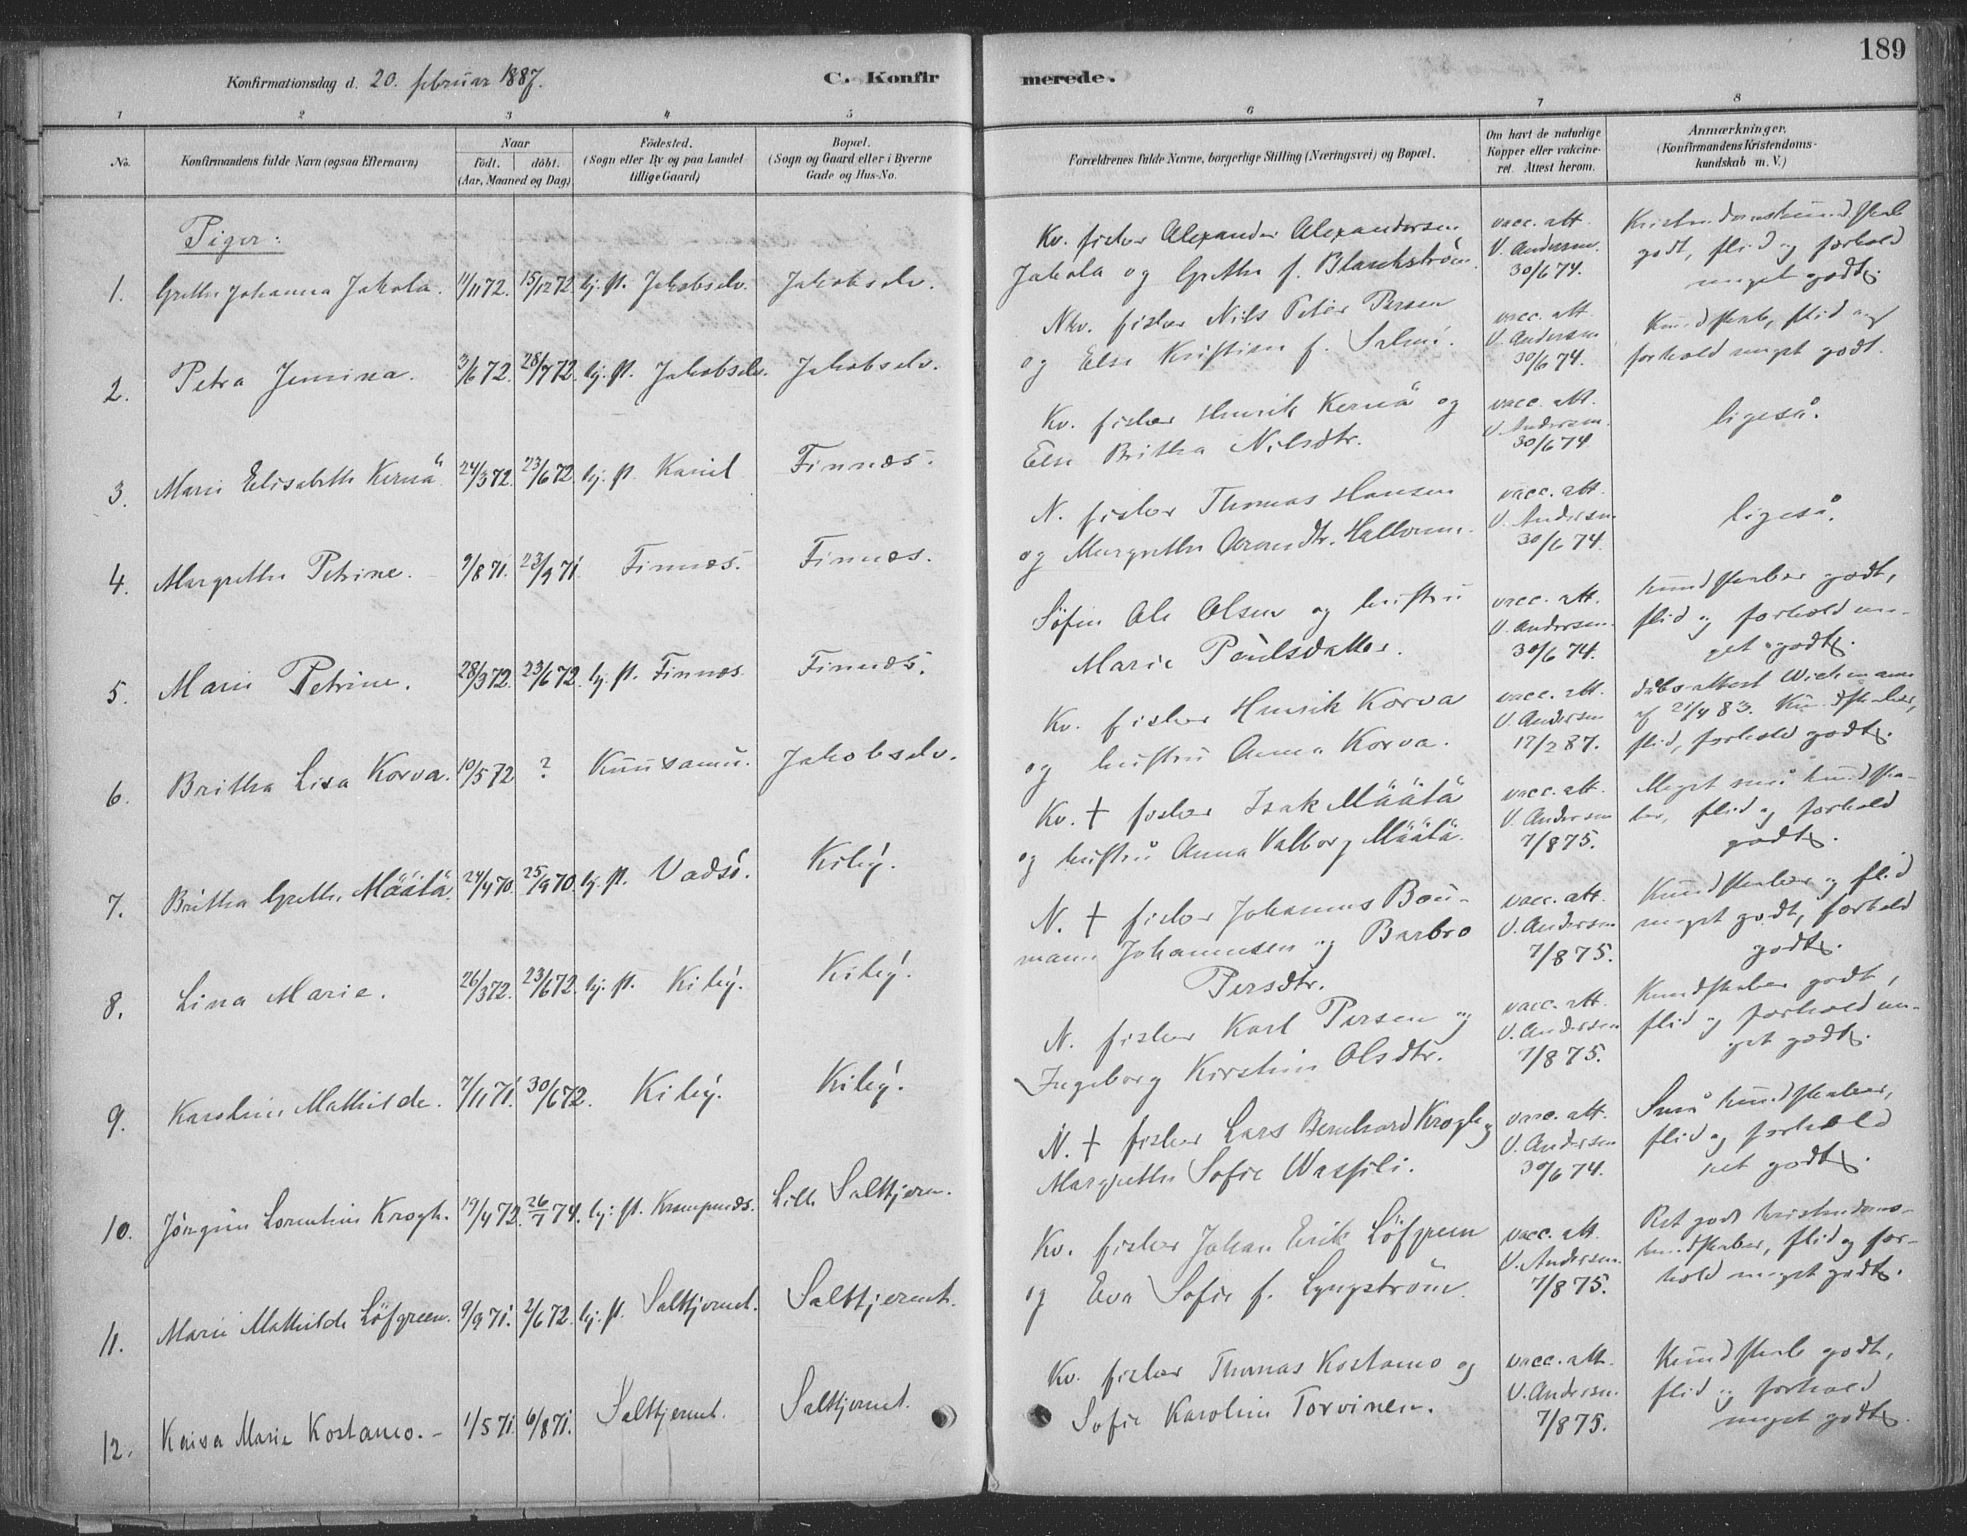 189
Konfirmationsdag d. 20. februar 1887.
C. Konfirmerede.
1 2 3 4 5 6 7 8
No.
Konfirmandens fulde Navn (ogsaa Efternavn)
Naar
födt. döbt.
(Aar, Maaned og Dag)
Födested.
(Sogn eller By og paa Landet
tillige Gaard)
Bopæl.
(Sogn og Gaard eller i Byerne
Gade og Hus-No.
Forældrenes fulde Navne, borgerlige Stilling (Næringsvei) og Bopæl.
Om havt de naturlige
Kopper eller vakcine-
ret. Attest herom.
Anmærkninger.
(Konfirmandens Kristendoms-
kundskab m. V.)
Piger:
1. Grethe Johanna Jakola. 11/11 72. 15/12 72 hj. st. Jakobselv. Jakobselv.
Kv. fisker Alexander Alexandersen
Jakola og Grethe f. Blankström.
vacc. att.
V. Andersen.
30/6 74.
Kristendomskundskab
godt, flid og forhold
meget godt.
2. Petra Jemina. 3/6 72. 28/7 72. hj. st. Jakobselv. Jakobselv.
Nkv. fisker Nils Peter Persen
og Else Kristian f. Salmi.
vacc. att
V. Andersen
30/6 74.
Kundskab, flid og
forhold meget godt.
3. Marie Elisabeth Kernä 24/3 72. 23/6 72 hj. st. Finnæs.
Kv. fisker Henrik Kernä og
Else Britha Nilsdtr.
vacc. att.
V. Andersen.
30/6 74
ligeså.
4. Margrethe Petrine. 9/8 71. 23/9 71 Finnæs. Finnæs.
N. fisker Thomas Hansen
og Margrethe
vacc. att.
V. Andersen
30/6 74.
ligeså.
5. Marie Petrine. 28/3 72. 23/6 72. hj. st. Finnæs. Finnæs.
Ole Olsen og hustru
Marie Poulsdatter.
vacc. att.
V. Andersen.
30/6 74.
Kundskaber godt,
flid og forhold me-
get godt.
6. Britha Lisa Korva. 10/5 72 ? Kuusamu. Jakobselv.
Kv. fisker Henrik Korva
og hustru Anna Korva.
vacc. att.
V. Andersen
17/2 87.
dåbsattest Wichmann
af 21/4 83. Kundskaber,
flid, forhold godt.
7. Britha Grethe Määtä. 24/4 70. 25/9 70. hj. st. Vadsö. Kibÿ.
Kv. + fisker Isak Määtä
og hustru Anna Valborg Määtä.
vacc. att.
V. Andersen
7/8 75.
Meget små kundska-
ber, flid og forhold
godt.
8. Lina Marie. 26/3 72. 23/6 72. hj. st. Kibÿ. Kibÿ.
N. + fisker Johannes Bau-
mann Johannesen og Barbro
Persdtr.
vacc. att.
V. Andersen
7/8 75.
Kundskaber og flid
meget godt, forhold
godt.
9. Karoline Mathilde. 7/11 71. 30/6 72. Kibÿ. Kibÿ.
N. fisker Karl Persen og
Ingeborg Kirstine Olsdtr.
vacc. att
V. Andersen
7/8 75.
Kundskaber godt,
flid og forhold me-
get godt.
10. Jörgine Lorentine Krogh. 19/4 72. 26/7 74. hj. st. Krampenæs. Lille Saltkjern.
N. + fisker Lars Bernhard Krogh og
Margrethe Sofie Wassili.
vacc. att.
V. Andersen
30/6 74.
Små kundskaber,
flid og forhold
ret godt.
11. Marie Mathilde Löfgreen. 9/9 71. 2/6 72. hj. st. Saltkjernet. Saltkjernet.
Kv. fisker Johan Erik Löfgreen
og Eva Sofie f. Lyngström.
vacc. att.
V. Andersen.
7/8 75.
Ret godt kristendoms-
kundskaber, flid og for-
hold meget godt.
12. Kaisa Marie Kostamo. 1/5 71. 6/8 71. Saltkjernet. Saltkjernet.
Kv. fisker Thomas Kostamo og
Sofie Karoline Torvinen.
vacc. att.
V. Andersen.
7/8 75.
Kundskab godt,
flid og forhold
meget godt.